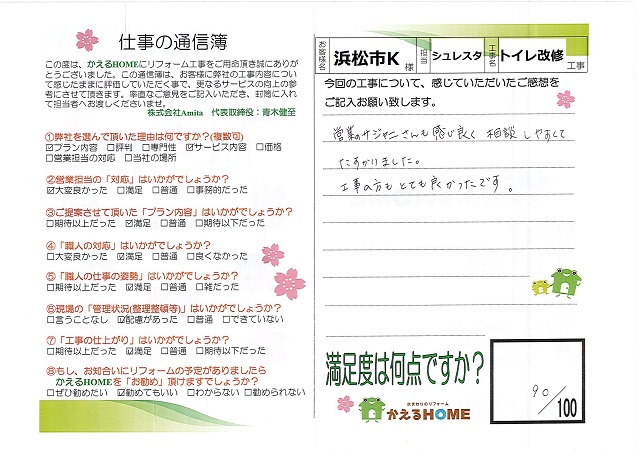 仕事の通信簿
この度は、かえるHOMEにリフォーム工事をご用命頂き誠にありが
とうございました。この通信簿は、お客様に弊社の工事内容につい
て感じたままに評価していただく事で、更なるサービスの向上の参
考にさせて頂きます。率直なご意見をご記入いただき、封筒に入れ
て担当者へお渡しくださいませ。
株式会社Amita 代表取締役:青木健至
①弊社を選んで頂いた理由は何ですか?(複数可)
☑プラン内容 □評判 □専門性 ☑サービス内容 □価格
□営業担当の対応 □当社の場所
②営業担当の「対応」はいかがでしょうか?
☑大変良かった □満足 □普通 □事務的だった
③ご提案させて頂いた「プラン内容」はいかがでしょうか?
□期待以上だった ☑満足 □普通 □期待以下だった
④「職人の対応」はいかがでしょうか?
□大変良かった ☑満足 □普通 □良くなかった
⑤「職人の仕事の姿勢」はいかがでしょうか?
□期待以上だった ☑満足 □普通 □雑だった
⑥現場の「管理状況(整理整頓等)」はいかがでしょうか?
□言うことなし ☑配慮があった □普通 □できていない
⑦「工事の仕上がり」はいかがでしょうか?
□期待以上だった ☑満足 □普通 □期待以下だった
⑧もし、お知合いにリフォームの予定がありましたら
かえるHOMEを「お勧め」頂けますでしょうか?
□ぜひ勧めたい ☑勧めてもいい □わからない □勧められない
お客様名 浜松市K 様 担当 シュレスタ 工事名 トイレ改修 工事
今回の工事について、感じていただいたご感想を
ご記入お願い致します。
営業のサジャニさんも感じ良く 相談しやすくて
たすかりました。
工事の方もとても良かったです。
満足度は何点ですか?
90/100
水まわりのリフォーム
かえるHOME